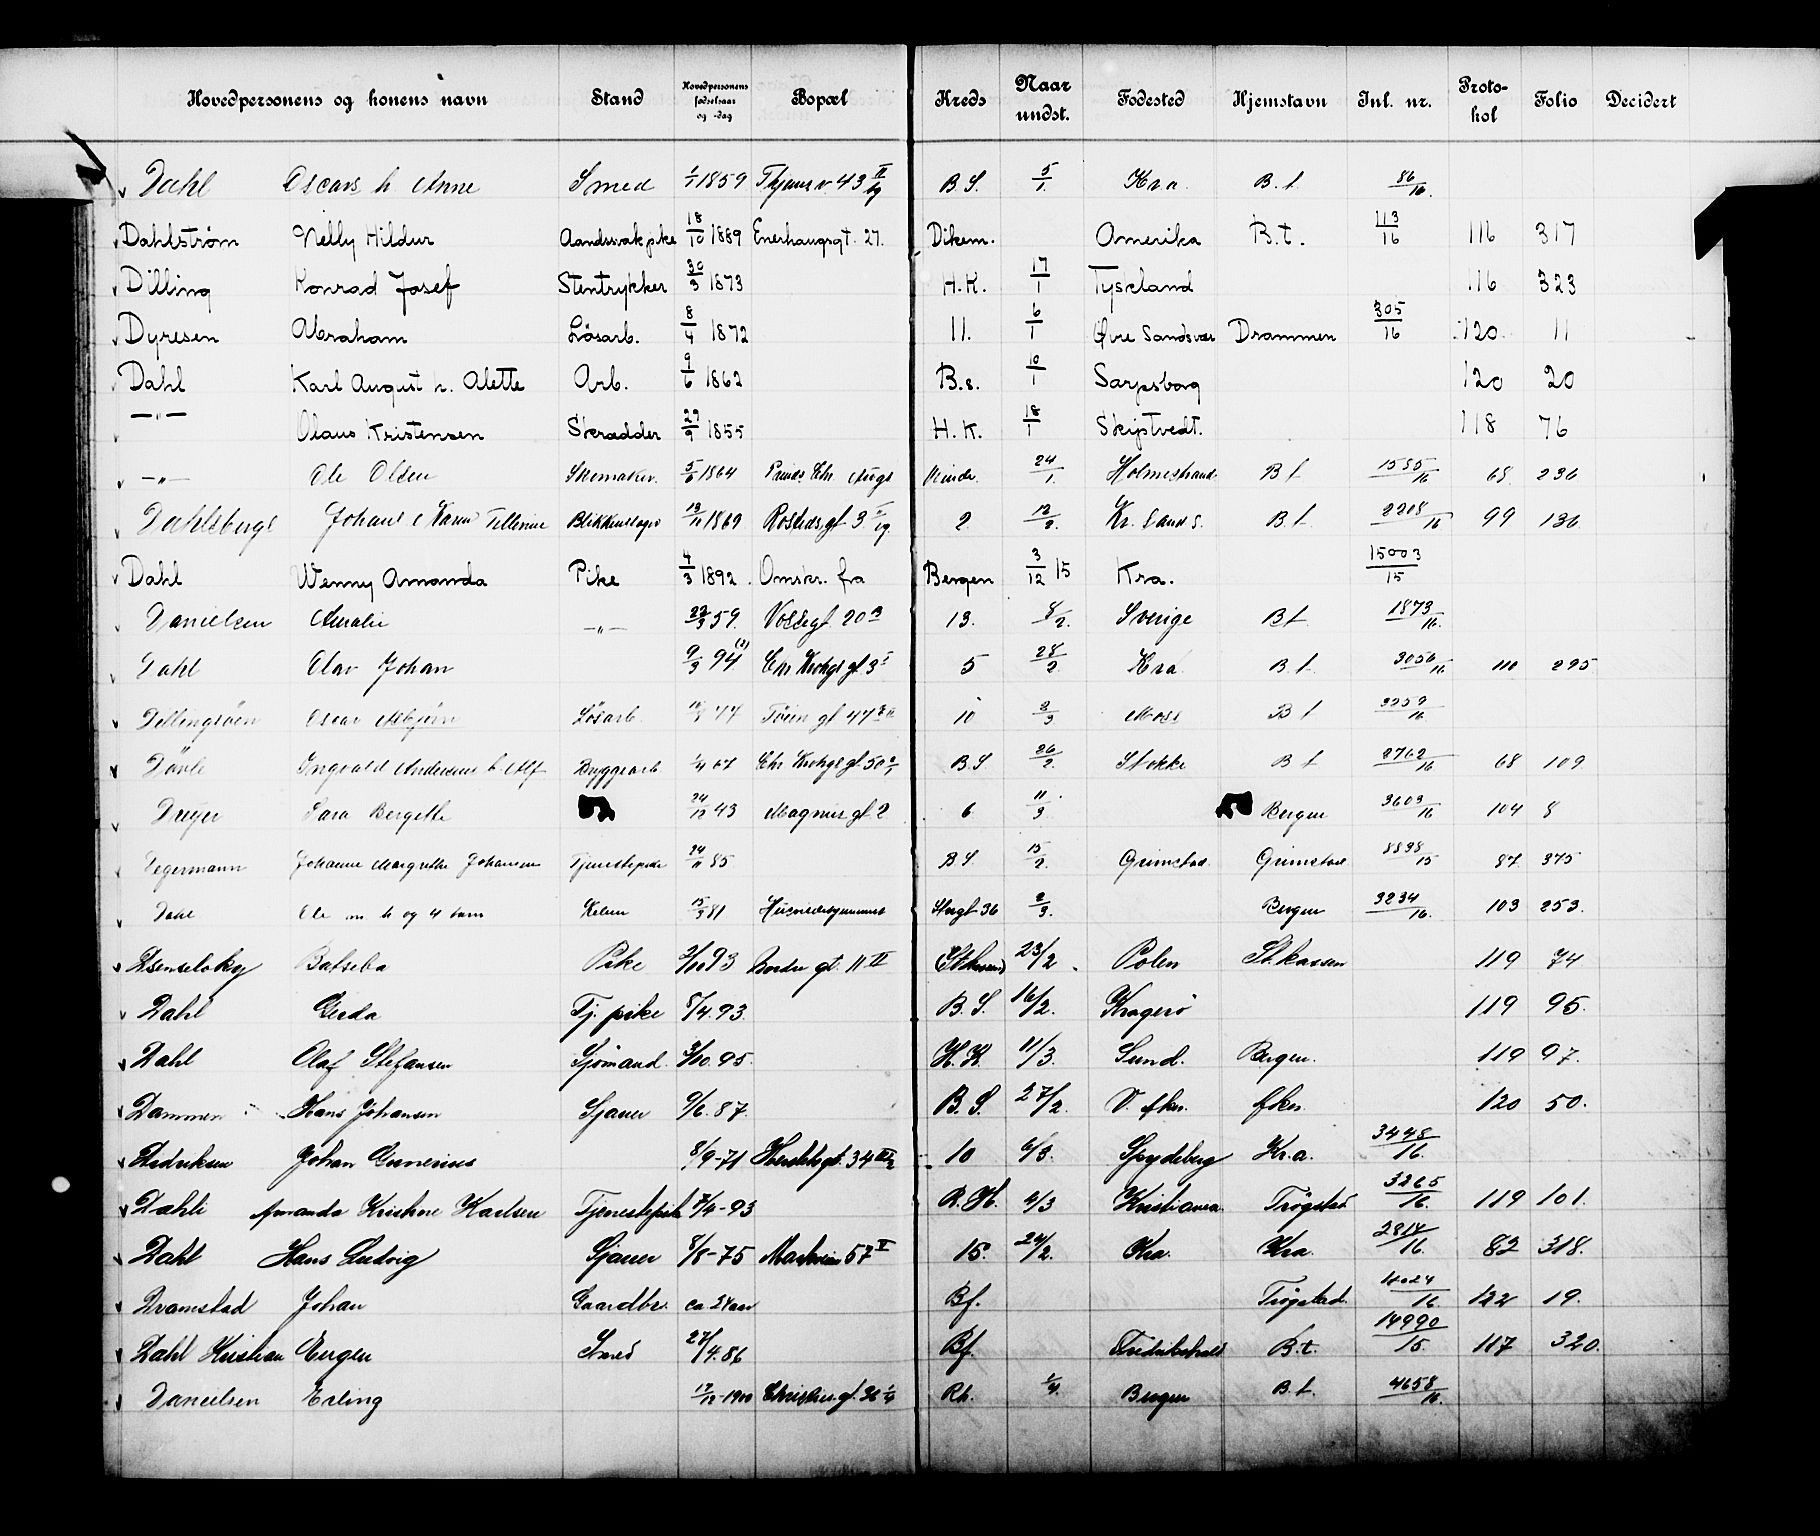 Hovedpersonens og konens navn Stand Hovedpersonens fødselsaar og -dag Bopæl Kreds Naar undst. Fødested Hjemstavn Inl. nr. Protokol Folio Decidert
Dahl Oscars h. Anne Smed 1/1 1859 43 II B.S. 5/1. Kra. B.t. 86/16.
Dahlström Nelly Hildur 18/10 1889 Enerhaugsgt. 27. Dikem. Amerika B.t. 113/16 116 317
Dilling Konrad Josef Stentrykker 30/3 1873 H.K. 17/1 Tyskland 116 323
Dyresen Abraham Løsarb. 8/4 1872 11. 6/1 Øvre Sandsvær Drammen 305/16 120 11
Dahl Karl August h. Alette Arb. 9/6 1862 B.s. 10/1 Sarpsborg 120 20
—"— Olaus Kristensen Skrædder 29/9 1855 H.K. 18/1 Skiptvedt. 118 76
—"— Ole Olsen Skomaker. 5/6 1864 Prinds Chr Augs Kinde. 24/1. Holmestrand B.t 1585/16 68 236
Dahlsbergs Johans Karen Tellerine Blikkenslager 1869 Rosteds gt 3 2. 12/2. Kr. Sand S. B.t. 2208/16 99 136
Dahl Wenny Amanda Pike 4/3 1892. Omskr. fra Bergen 3/12 15 Kra. 15003/15
Danielsen Amalie —"— 22/3 59. Voldsgt 20 B 13. 8/2. Sverige B.t. 1873/16.
Dahl Olav Johan 9/3 94 Chr Krohgs gt 3 I 5 28/2 Kra B.t 3056/16 110 295
Dillingsöen Oscar Asbjörn Lösarb. 44 Töien gt 47 10 3/3 Moss B t 3259/16
Ingvald Andersens h. Alf Byggearb 67 Chr Krohgs gt. 50 B.S 26/2. Stokke B t 2762/16 68 109
Dreyer Sara Bergette 24/12 43 Magnus gt 2 6 11/3 Bergen 3603/16 104 8
Degermann Johanne Margrethe Johansen Tjenestepike 24/11 85 B S 15/2. Grimstad. Grimstad 8838/15 87. 375
Dahl Ole m. h og 4 barn Kelner 15/3 81 Storgt 36 2/3. Bergen 3234/16. 103 253.
Batseba Pike 93 Nordre gt. 11 II 23/2. Polen St. kassen 119 74
Dahl Gerda Tj. pike 8/4. 93. B.S. 16/2. Kragerö 119 95.
Dahl Olaf Stefansen Sjömand. 3/10. 95. H.K 11/3. Sund. Bergen. 119 97.
Dammen Hans Johansen Sjauer 9/6. 87. B.S. 27/2. V. fkn. fkn. 120 50.
Didriksen Johan Gunerius 8/9-71 34 III 10 6/3. Spydeberg Kra. 3448/16.
Dahli Amanda Kristine Karlsen Tjenestepik 7/4-93 R.H. 4/3 Kristiania. Trögstad 3265/16. 119 101.
Dahl Hans Ludvig Sjauer 8/8-75 Markveien 57 II 15. 24/2. Kra. Kra. 2814/16. 82 318.
Dramstad Johan Gaardbr. ca 24 aar Bf. Trögstad. 122 19.
Dahl Kristian Birger Smed 27/4. 86 Bf. Fredrikshald B.t. 14990/15. 117 320.
Danielsen Erling 1900 gt. 36 Rh. 1/4. Bergen B.t. 4658/16.